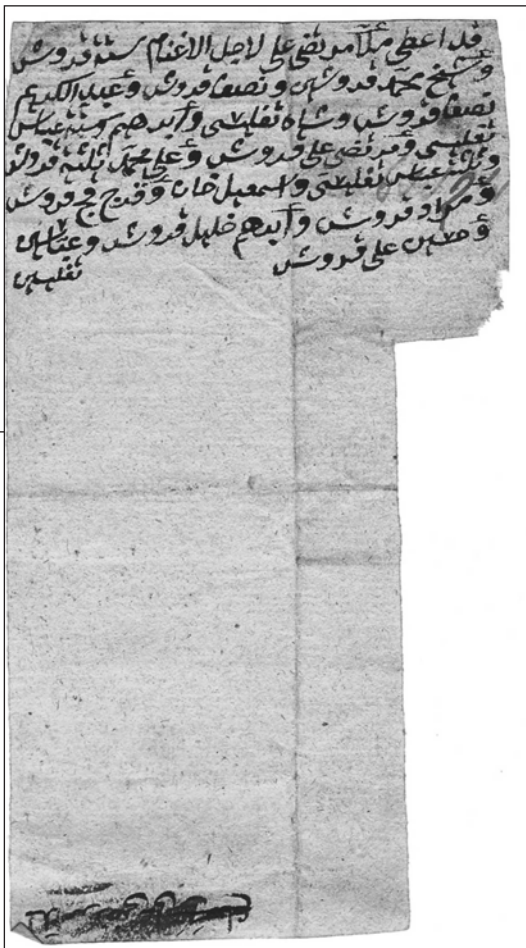 قد اعطى ملا مرتضى على لاجل الاغنام ستة قروش
و شيخ محمد قروشين و نصف قروش و عبد الكريم
نصف قروش و شاه تفليسى و ابرهيم ستة عباس
تفليسى و مرتضى على قروش و على محمد ثلثة قروش
و تفليسى و اسمعيل خان و قروش
و مراد قروش و ابرهيم خليل قروش و عباس
و حسين على قروش تفليسى